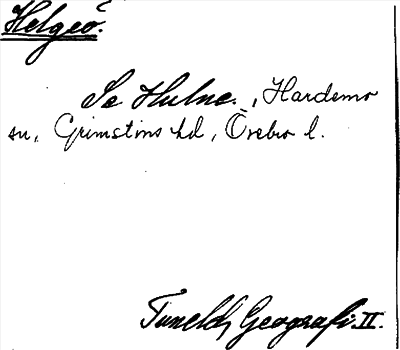 Helgeö.
Se Hulne., Hardemo
sn, Grimstens hd, Örebro l.
Tunelds Geografi. II.